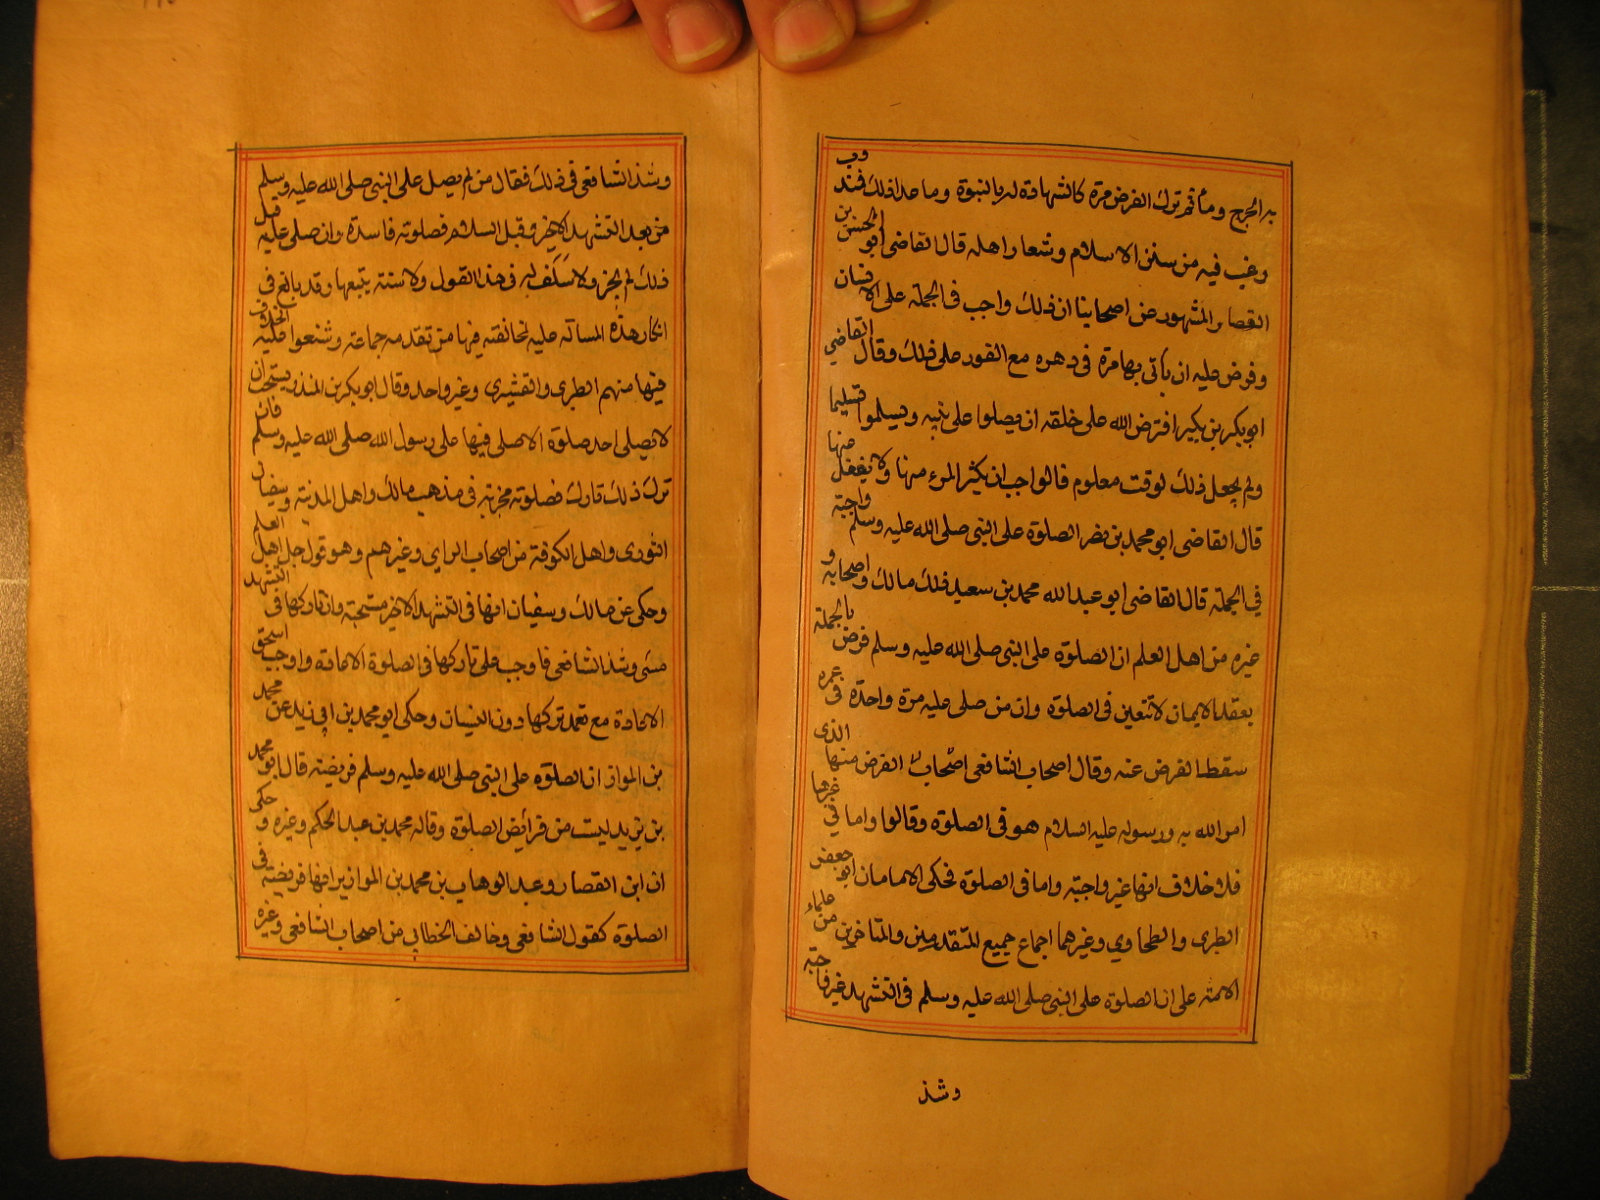 به الحرج ومأثم ترك الفرض مرة كالشهادة له بالنبوة وما عدا ذلك فمندوب
ورغب فيه من سنن الاسلام وشعار اهله قال القاضى ابو الحسن بن
القصار والمشهور عن اصحابنا ان ذلك واجب فى الجملة على الانسان
وفرض عليه ان يأتى بها مرة فى دهره مع القدر على ذلك وقال القاضي
ابو بكر بن بكير افترض الله على خلقه ان يصلوا على نبيه ويسلموا تسليما
ولم يجعل ذلك لوقت معلوم فالواجب ان يكثر المرء منها ولا يغفل عنها
قال القاضى ابو محمد بن نصر الصلوة على النبى صلى الله عليه وسلم واجبة
في الجملة قال القاضى ابو عبد الله محمد بن سعيد ذلك مالك واصحابه و
غيره من اهل العلم ان الصلوة على النبى صلى الله عليه وسلم فرض بالجملة
بعقد الايمان لا تتعين فى الصلوة وان من صلى عليه مرة واحدة فى عمره
سقط الفرض عنه وقال اصحاب الشافعى اصحاب الفرض منها الذى
امر الله به ورسوله عليه السلام هو فى الصلوة وقالوا واما في غيرها
فلا خلاف انها غير واجبة واما فى الصلوة فحكى الامامان ابو جعفر
الطبرى والطحاوي وغيرهما اجماع جميع المتقدمين والمتأخرين من علماء
الامة على ان الصلوة على النبى صلى الله عليه وسلم فى التشهد غير واجبة
وشذ
وشذ الشافعى فى ذلك فقال من لم يصل على النبى صلى الله عليه وسلم
من بعد التشهد الاخر وقبل السلام فصلوته فاسدة وان صلى عليه قبل
ذلك لم يجز ولا سلف له فى هذا القول ولا سنة يتبعها وقد بالغ فى
انكار هذه المسألة عليه لمخالفته فيها من تقدمه جماعة وشنعوا عليه الخلاف
فيها منهم الطبرى والقشيرى وغير واحد وقال ابو بكر بن المنذر يستحب ان
لا يصلى احد صلوة الا صلى فيها على رسول الله صلى الله عليه وسلم فان
ترك ذلك تارك فصلوته مجزية فى مذهب مالك واهل المدينة وسفيان
الثورى واهل الكوفة من اصحاب الراي وغيرهم وهو قول جل اهل العلم
وحكى عن مالك وسفيان انها فى التشهد الاخر مستحبة وان تاركها فى التشهد
مسئ وشذ الشافعى فاوجب على تاركها فى الصلوة الاعادة واوجب اسحق
الاعادة مع تعمد تركها دون النسيان وحكى ابو محمد بن ابى زيد عن محمد
بن المواز ان الصلوة على النبى صلى الله عليه وسلم فريضة قال ابو محمد
بن يزيد ليست من فرائض الصلوة وقاله محمد بن عبد الحكم وغيره وحكى
ان ابن القصار وعبد الوهاب بن محمد بن المواز يراها فريضة فى
الصلوة كقول الشافعى وخالف الخطابى من اصحاب الشافعى وغيره